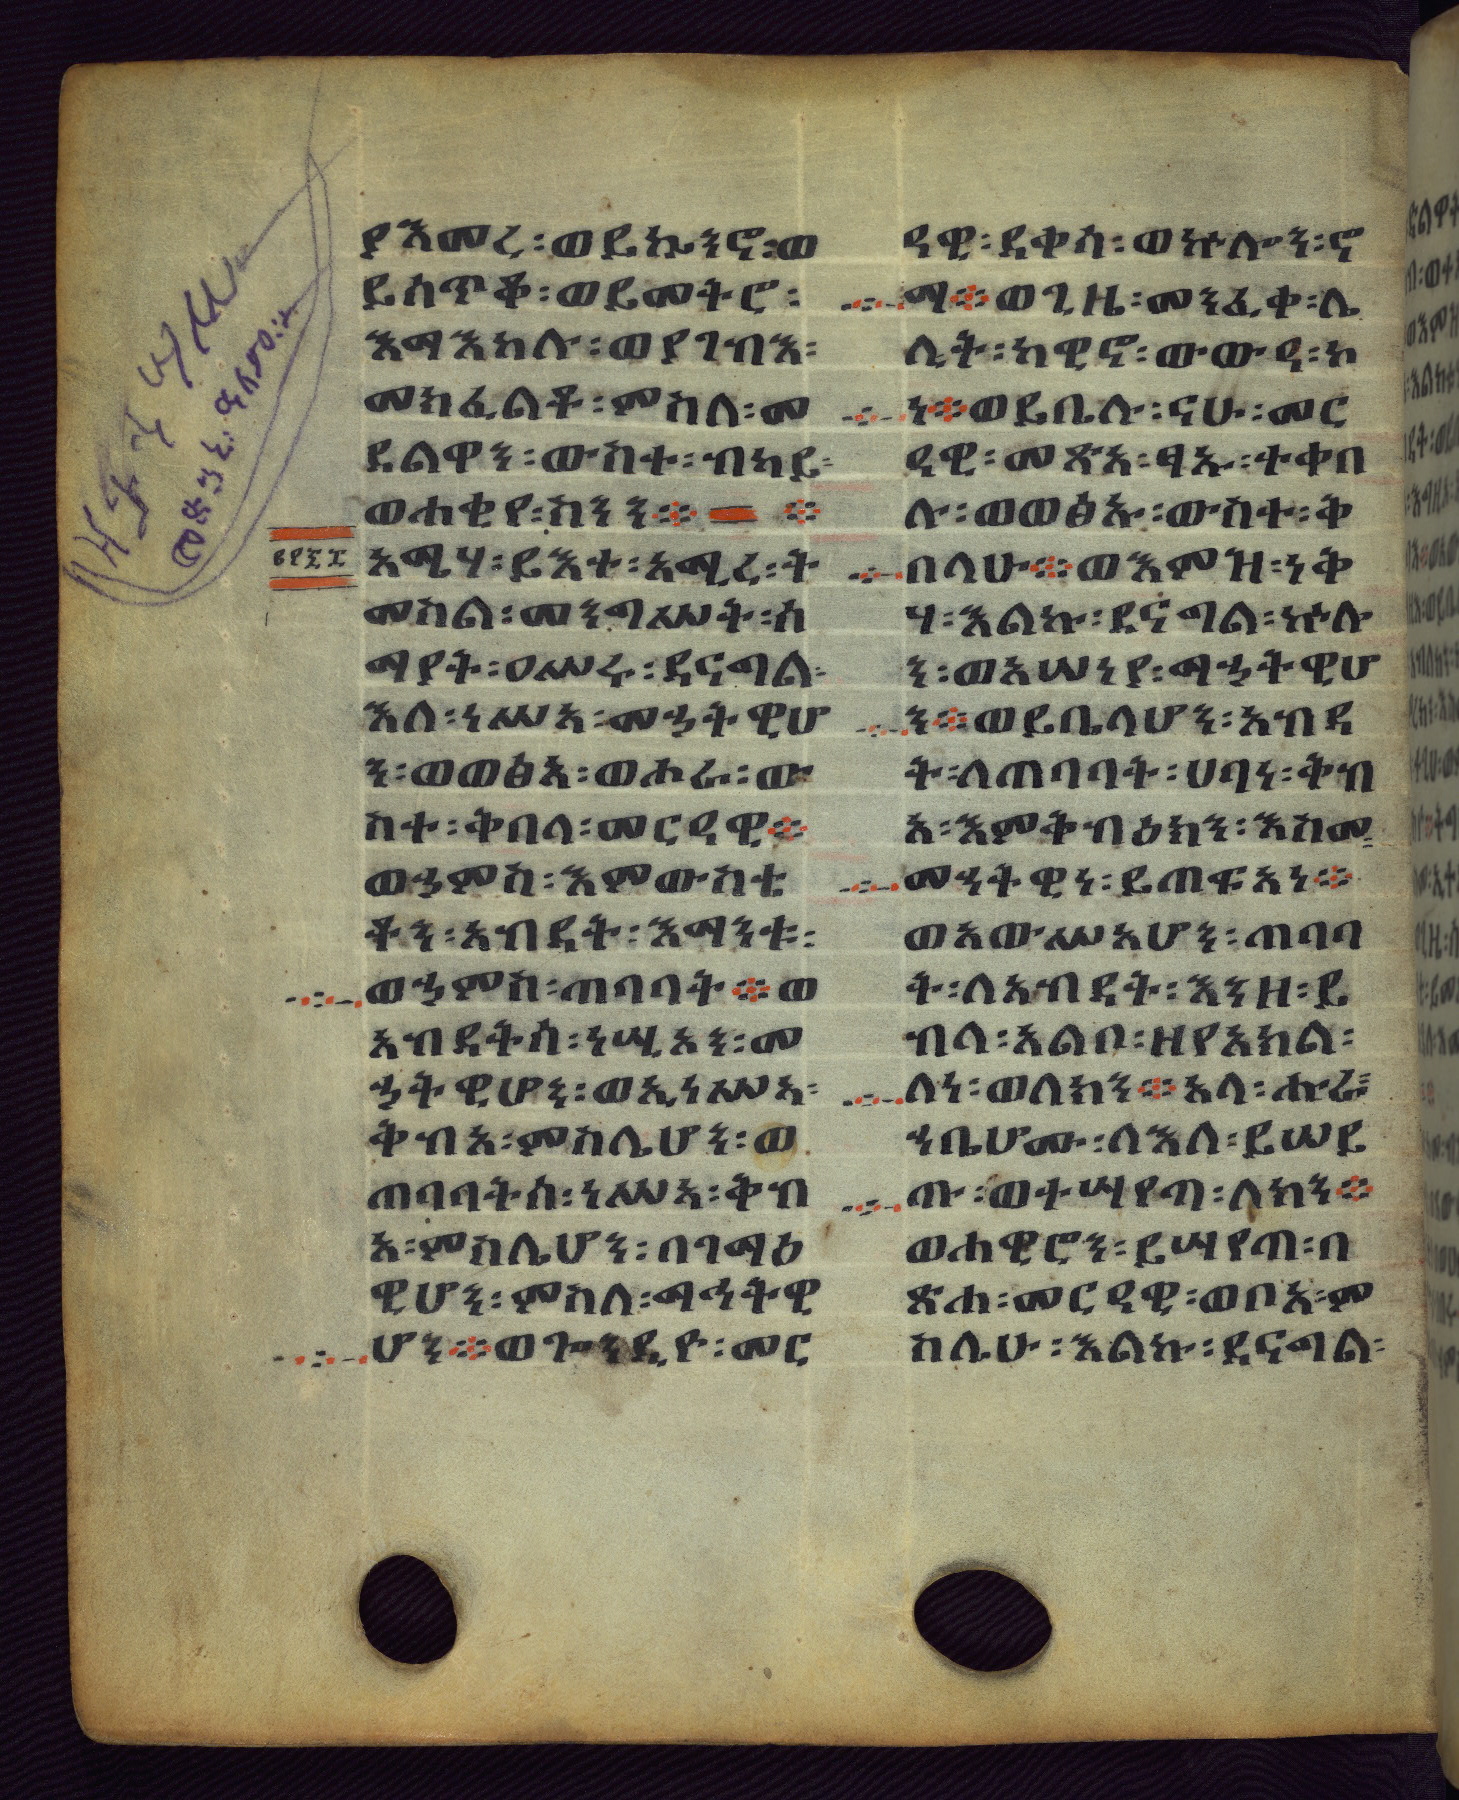 ያእመር፡ወይኴንኖ፡ወ
ይሰጥቆ፡ወይመትሮ፡
እማእከሉ፡ወያገብእ፡
መክፈልቶ፡ምስለ፡መ
ደልዋን፡ውስተ፡ብካይ፡
ወሐቂየ፡ስነን፨ ፨
አሜሃ፡ይእተ፡አሚረ፡ት
መስል፡መንግሥት፡ሰ
ማያት፡ዐሥሩ፡ደናግል፡
እለ፡ነሥኣ፡መኃትዊሆ
ን፡ወወፅአ፡ወሖራ፡ው
ስተ፡ቅበላ፡መርዓዊ፨
ወኃምስ፡እምውስቴ
ቶን፡አብዳት፡እማንቱ፡
ወኃምስ፡ጠባባት፨ወ
አብዳትሰ፡ነሢአን፡መ
ኃትዊሆን፡ወኢነሥኣ፡
ቅብአ፡ምስሌሆን፡ወ
ጠባባትሰ፡ነሥኣ፡ቅብ
አ፡ምስሌሆን፡በገማዕ
ዊሆን፡ምስለ፡ማኅትዊ
ሆን፨ወጐንደየ፡መር
ዓዊ፡ደቀሳ፡ወኵሎን፡ኖ
ማ፨ወጊዜ፡መንፈቀ፡ሌ
ሊት፡ከዊኖ፡ውውዓ፡ኮ
ነ፨ወይቤሉ፡ናሁ፡መር
ዓዊ፡መጽአ፡ፃኡ፡ተቀበ
ሉ፡ወወፅኡ፡ውስተ፡ቅ
በላሁ፨ወእምዝ፡ነቅ
ሃ፡እልኩ፡ደናግል፡ኵሎ
ን፡ወአሠነያ፡ማኃትዊሆ
ን፨ወይቤላሆን፡አብዳ
ት፡ለጠባባት፡ሀባነ፡ቅብ
አ፡እምቅብዕክን፡እስመ
መኃትዊነ፡ይጠፍአነ፨
ወአውሥአሆን፡ጠባባ
ት፡ለአብዳት፡እንዘ፡ይ
ብላ፡አልቦ፡ዘየአክል፡
ለነ፡ወለክን፨አላ፡ሑራ፡
ኀቤሆሙ፡ለእለ፡ይሠይ
ጡ፡ወተሣየጣ፡ለክን፨
ወሐዊሮን፡ይሣየጣ፡በ
ጽሐ፡መርዓዊ፡ወቦአ፡ም
ስሌሁ፡እልኩ፡ደናግል፡